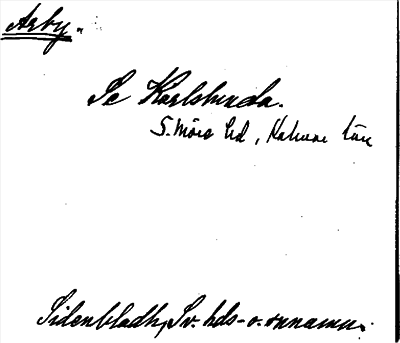 Arby.
Se Karlslunda.
S. Möre hd, Kalmar län
Sidenbladh, Sv. hds- o. snnamn.